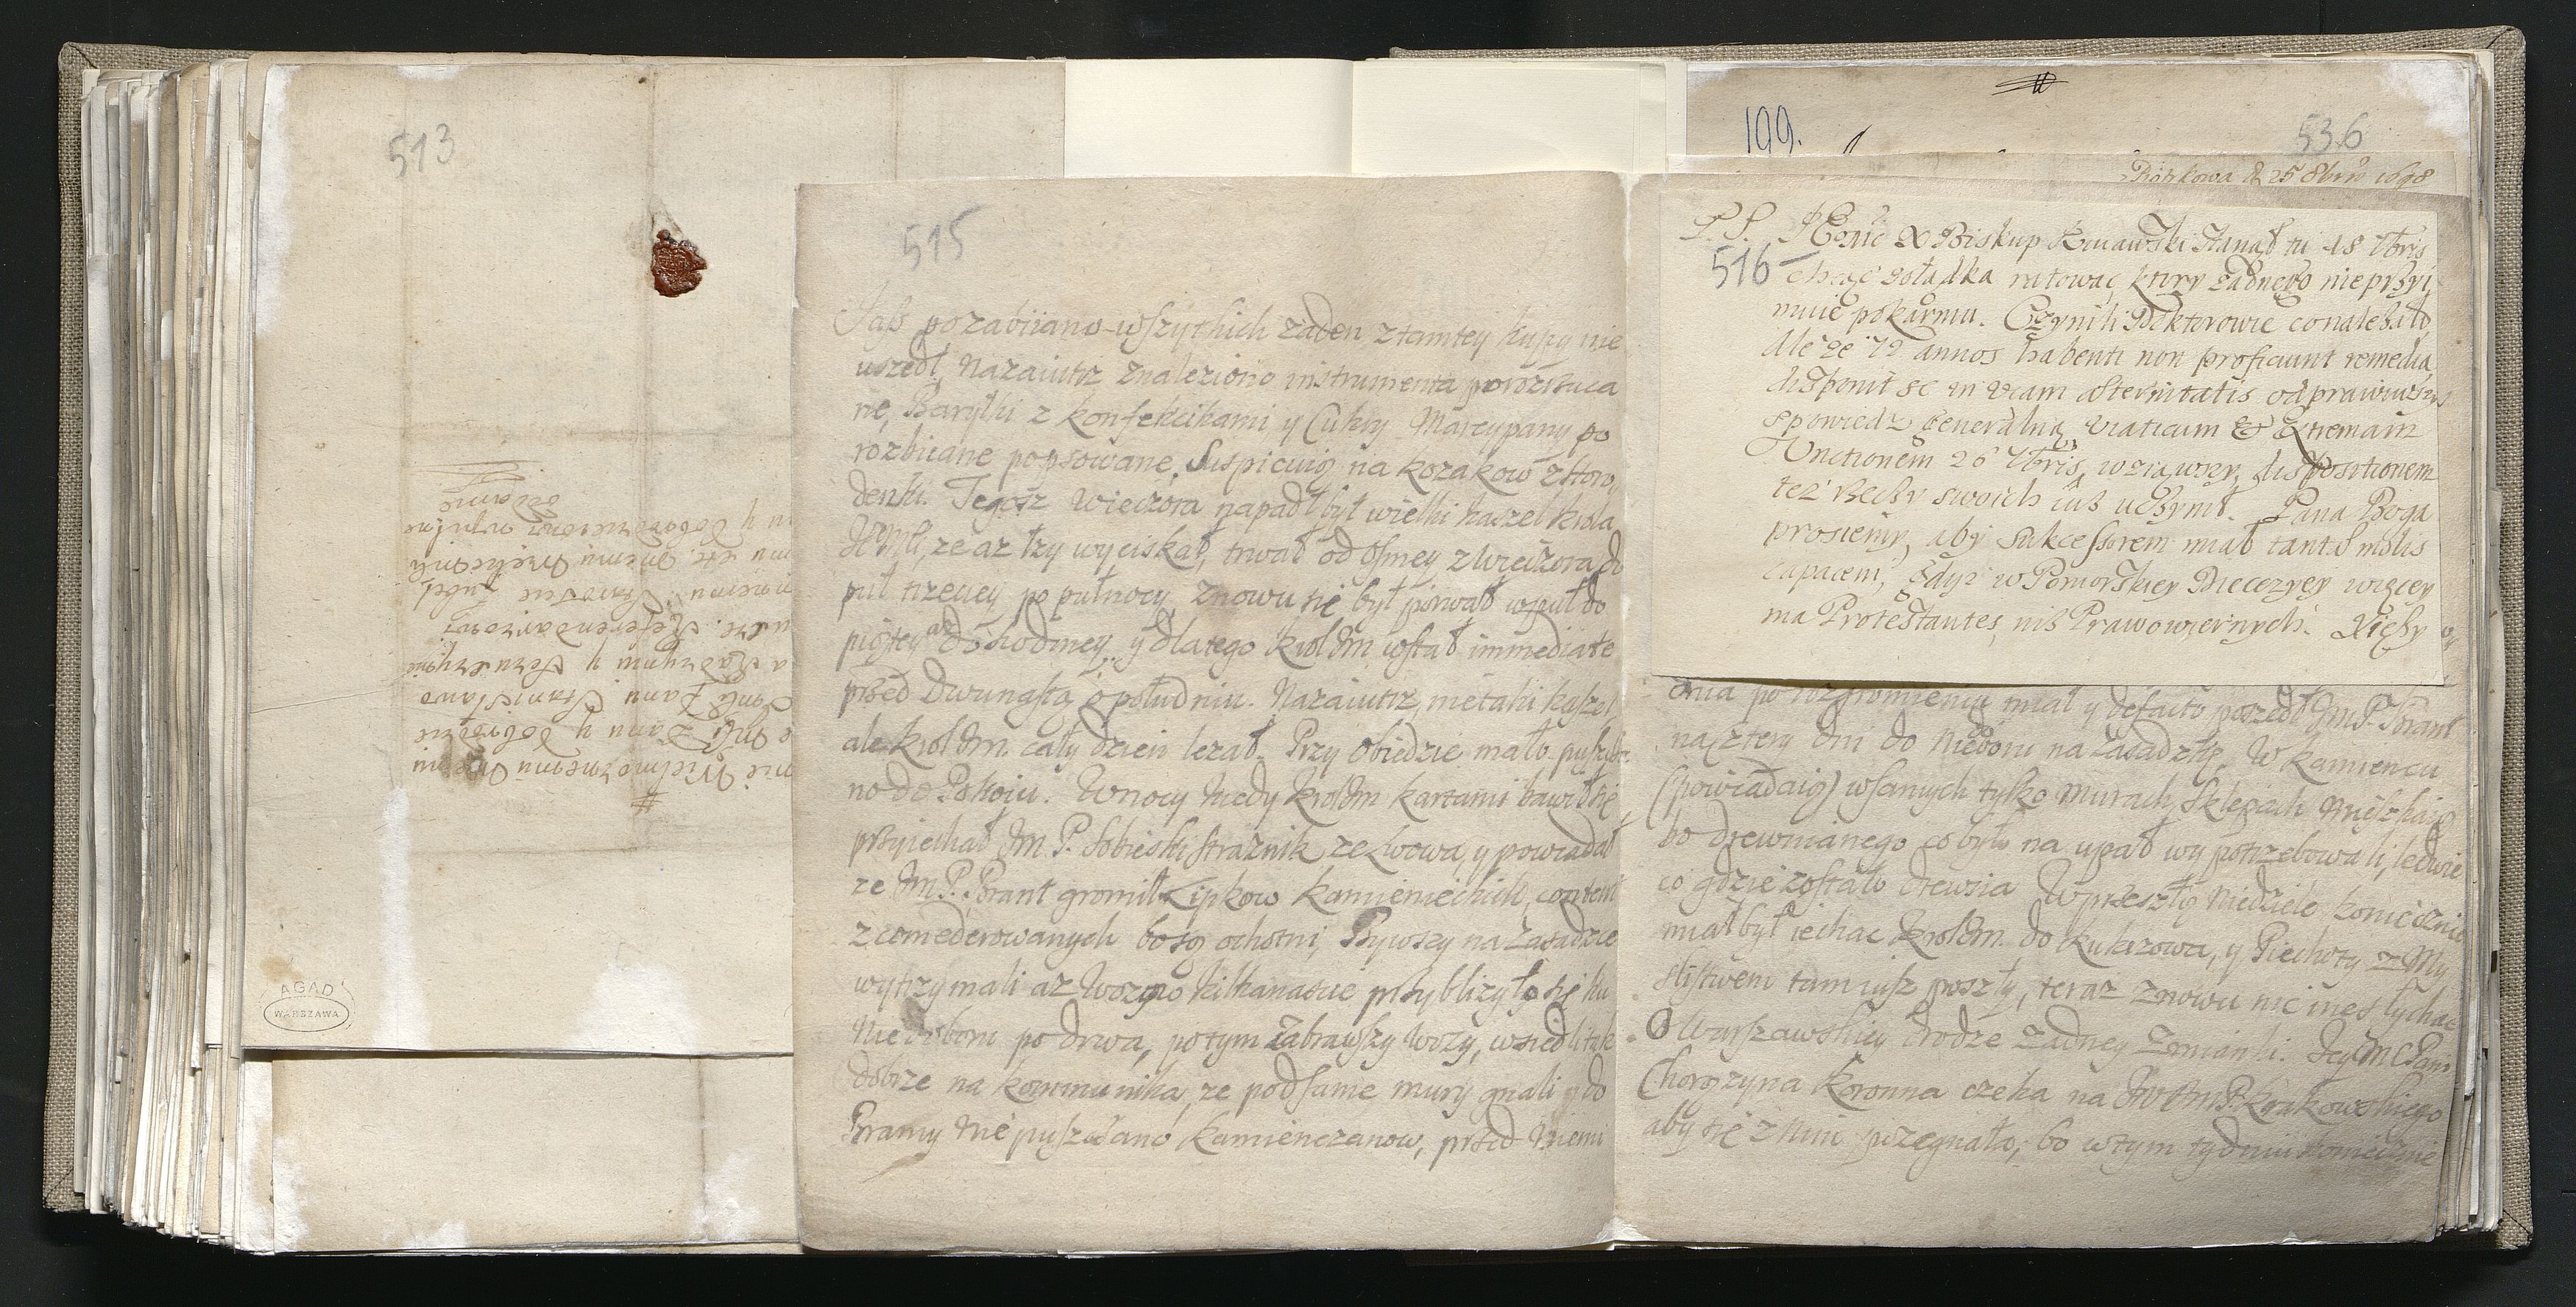 513
nie Wielmożnemu Mem͠u
Panu y Dobrodz
Jmci Panu Stanisławo
a Radzymi y Szczuczynie
etc. Referendarzowi
Staroście Lubel.
mu etc. memu Wielce Mći
mu y Dobrodzieiowi
AGAD
WARSZAWA
515
Jaß pozabiiano wszytkich żaden z tamtey kupy nie
uszedł, Nazaiutrz znaleziono instrumenta porozrzuca
ne, Baryłki z konfekcikami y Cukry Marcypany po
rozbiiane popsowane. Suspicuią na kozakow z Horo
denki. Tegosz wieczora napadł był wielki kaszel krola
JoMsci, że aż łzy wyciskał, trwał od osmey z wieczora do
puł trzeciey po pułnocy, znowu się był porwał w puł do
piątey aż do siodmey, y dlatego krol Jm wstał immediate
przed Dwunastą o południu. Nazaiutrz nie taki kaszel,
ale krol Jm cały dzień leżał. Przy Obiedzie mało puszcza
no do Pokoiu. W nocy kiedy krol Jm kartami bawił się
przyiechał Jm P. Sobieski strażnik ze Lwowa, y powiadał
że Jm P. Brant gromił Lipkow kamienieckich, content
z comederowanych bo są ochotni, Bywszy na Zasadzie
wytrzymali aż wozow kilkanascie przybliżyło się ku
Nieboru po drwa, potym zabrawszy wozy, wsiedli tak
dobrze na kommunika, że pod same mury gnali y do
Bramy nie puszczano kamienczanow, przed niemi
199.
536
Piotrkowa d 25 8bris 1698
P. S. JEgość X Biskup Kuiawski stanął tu 18 7bris
516
chcąc żołądka ratować ktory żadnego nie przyi
muie pokarmu. Czynili Doktorowie co należało,
Ale że 72 annos habenti non proficiunt remedia,
disponit se in viam Aeternitatis odprawiwszy
spowiedz Generalną, Viaticum & Extremam
Unctionem 26 7bris, wziąwszy, dispositionem
też Rzeczy swoich iuż uczynił. Pana Boga
prosiemy, aby sukcessorem miał tantae molis
capacem, gdyż w Pomorskiey Diecezyey więcey
ma Protestantes, niż Prawowiernych. Xięży
dnia po rozgromieniu miał y defacto poszedł Jm P. Brant
na cztery dni do Nieboru na Zasadzkę. W kamiencu
(powiadaią) w samych tylko Murach, Sklepach mieszkaią
bo drewnianego co było na upał wypotrzebowali, ledwie
co gdzie zostało drewsia. W przeszłą Niedziele koniecznie
miał był iechac krol Jm. do kukizowa, y Piechoty z My
slistwem tam iusz poszły, teraz znowu nic nie słychac
O Warszawskiey drodze żadney zmianki. Jey Mc Pani
Chorążyna koronna czeka na Jm P. krakowskiego
aby się z nim pożegnała, bo w tym tydniu koniecznie